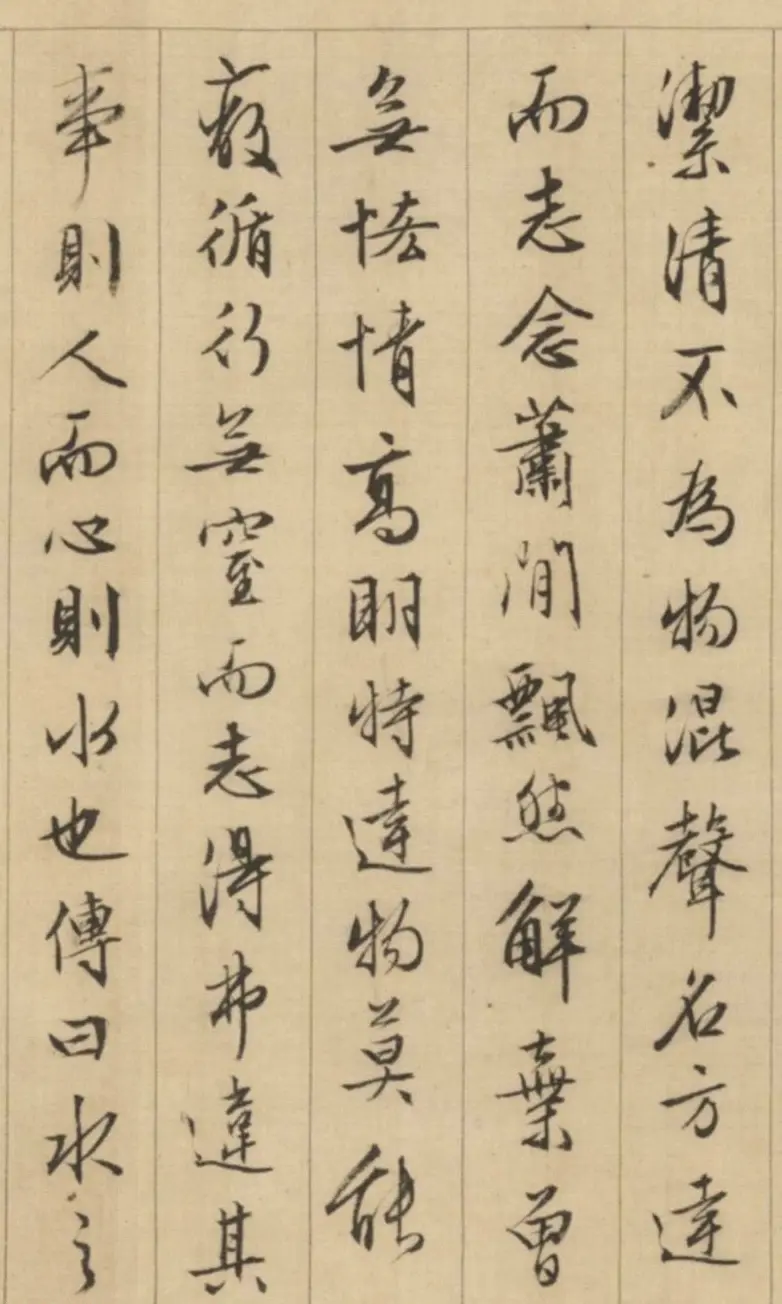 潔清不為物混聲名方達
而志念蕭閒飄然解棄曾
無恡情高明特達物莫能
蔽循行無窒而志得弗違其
率則人而心則水也傳曰水之